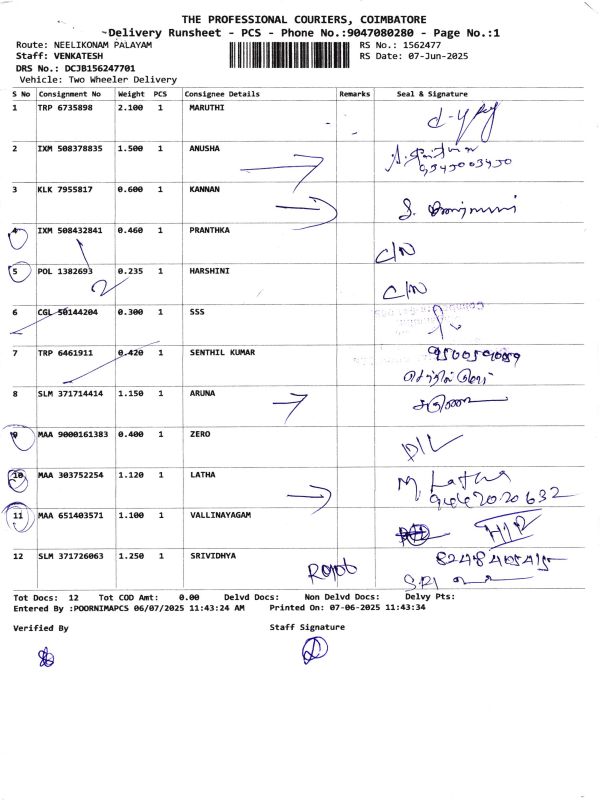 THE PROFESSIONAL COURIERS, COIMBATORE
Delivery Runsheet - PCS - Phone No.:9047080280 - Page No.:1
Route: NEELIKONAM PALAYAM
RS No.: 1562477
Staff: VENKATESH
RS Date: 07-Jun-2025
DRS No.: DCJB156247701
Vehicle: Two Wheeler Delivery
S No Consignment No Weight PCS Consignee Details Remarks Seal & Signature
1 TRP 6735898 2.100 1 MARUTHI
2 IXM 508378835 1.500 1 ANUSHA
3 KLK 7955817 0.600 1 KANNAN
4 IXM 508432841 0.460 1 PRANTHKA C/N
5 POL 1382693 0.235 1 HARSHINI C/N
6 CGL 50144204 0.300 1 SSS
7 TRP 6461911 0.420 1 SENTHIL KUMAR
செந்தில்குமார்
8 SLM 371714414 1.150 1 ARUNA
அருணா
9 MAA 9000161383 0.400 1 ZERO D/L
10 MAA 303752254 1.120 1 LATHA M Latha
9442020632
11 MAA 651403571 1.100 1 VALLINAYAGAM
12 SLM 371726063 1.250 1 SRIVIDHYA
Tot Docs: 12 Tot COD Amt: 0.00 Delvd Docs: Non Delvd Docs: Delvy Pts:
Entered By :POORNIMAPCS 06/07/2025 11:43:24 AM Printed On: 07-06-2025 11:43:34
Verified By Staff Signature